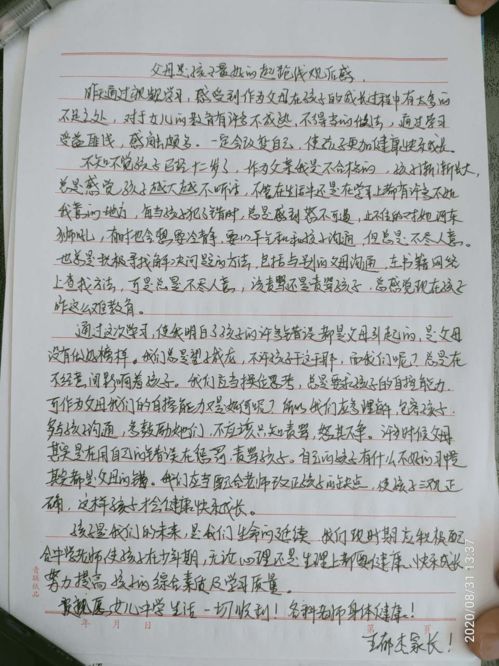 父母是孩子最好的起跑线观后感
昨天通过视频学习,感受到作为父母在孩子的成长过程中有太多的
不足之处,对于女儿的教育有许多不成熟、不得当的做法,通过学习
受益匪浅,感触颇多。一定会从自己,使孩子更加健康快乐成长。
不知不觉孩子已经十二岁了,作为父亲我是不合格的,孩子渐渐长大,
总是感觉孩子越大越不听话,不管在生活中还是在学习上都有许多不如
我意的地方,每当孩子犯了错时,总是感到怒不可遏,止不住的对她河东
狮吼,有时也会想要冷静,要心平气和和孩子沟通,但总是不尽人意。
也总是积极寻找解决问题的方法,包括与别的父母沟通,在书籍网络
上查找方法,可是总是不尽人意,该责骂还是责骂孩子,总感觉现在孩子
咋这么难教育。
通过这次学习,使我明白了孩子的许多错误都是父母引起的,是父母
没有做好榜样。我们总是望子成龙,不许孩子干这干那,而我们呢?总是在
不经意间影响着孩子。我们应当换位思考,总是要求孩子的自控能力,
可作为父母我们的自控能力又是如何呢?所以我们应多理解、包容孩子,
多与孩子沟通,多鼓励她们,不应该只知责骂、怒其不争。许多时候父母
其实是在用自己的错误在惩罚、责骂孩子。自己的孩子有什么不好的习惯
其实都是父母的错。我们应当配合老师改正孩子的缺点,使孩子三观正
确,这样孩子才会健康快乐成长。
孩子是我们的未来,是我们生命的延续,我们现时期应积极配
合中学老师,使孩子在少年期,无论心理还是生理上都要健康、快乐成长,
努力提高孩子的综合素质及学习质量。
女儿中学生活一切顺利!各科老师身体健康!
年 月 日
第 页
家长!
青联纸品
2020/08/31 13:37